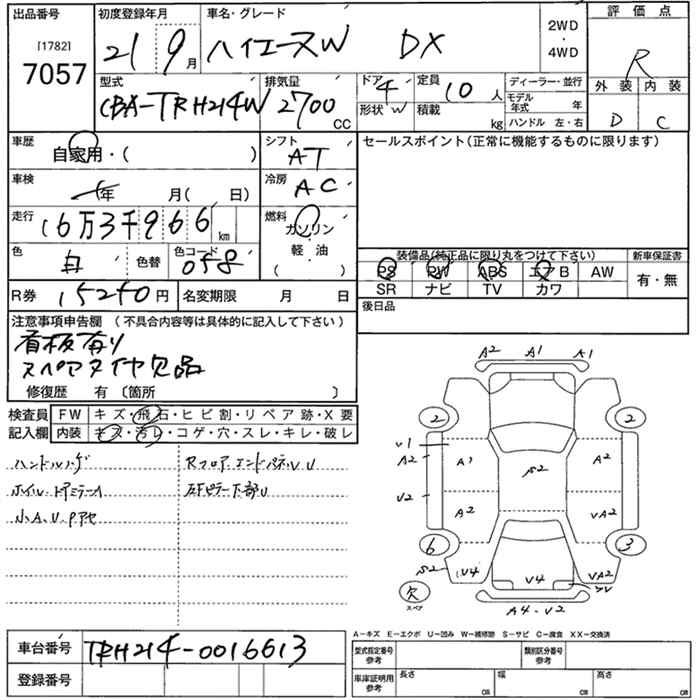 出品番号 初度登録年月 車名・グレード 2WD・4WD 評価点
[1782]
7057 21 9月 ハイエースW DX R
型式 排気量 ドア 4 定員 10人 ディーラー・並行 外装 内装
CBA-TRH214W 2700CC 形状 W 積載 kg モデル年式 年 D C
ハンドル 左・右
車歴 シフト セールスポイント(正常に機能するものに限ります)
自家用・( ) AT
車検 年 月( 日) 冷房 AC
走行 16万3千966km 燃料 ガソリン
色 白 色替 色コード 058 軽・油 ( )
装備品(純正品に限り丸をつけて下さい) 新車保証書
PS PW ABS エアB AW 有・無
SR ナビ TV カワ
R券 15250円 名変期限 月 日 後日品
注意事項申告欄 (不具合内容等は具体的に記入して下さい)
看板有り
スペアタイヤ欠品
修復歴 有〔箇所 〕
検査員 FW キズ・飛石・ヒビ割・リペア跡・X要
記入欄 内装 キズ・汚レ・コゲ・穴・スレ・キレ・破レ
A2 A1 A1
2 2
V1
A2 A1 A2 A2
V2 A2 VA2
6 3
S2 V4 V4 VA2
欠
スペア A4-V2
A-キズ E-エクボ U-凹み W-補修跡 S-サビ C-腐食 XX-交換済
車台番号 TRH214-0016613 型式指定番号 参考 類別区分番号 参考
登録番号 車庫証明用 参考 長さ cm 幅 cm 高さ cm